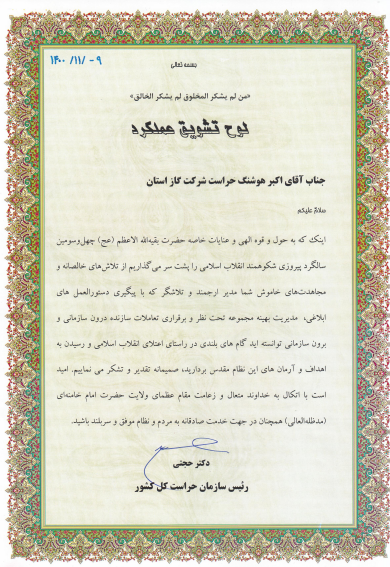 ۱۴۰۰ /۱۱/ -۹
بسمه تعالی
«من لم یشکر المخلوق لم یشکر الخالق»
لوح تشویق عملکرد
جناب آقای اکبر هوشنگ حراست شرکت گاز استان
سلام علیکم
اینک که به حول و قوه الهی و عنایات خاصه حضرت بقیه‌الله الاعظم (عج) چهل‌وسومین
سالگرد پیروزی شکوهمند انقلاب اسلامی را پشت سر می‌گذاریم از تلاش‌های خالصانه و
مجاهدت‌های خاموش شما مدیر ارجمند و تلاشگر که با پیگیری دستورالعمل های
ابلاغی، مدیریت بهینه مجموعه تحت نظر و برقراری تعاملات سازنده درون سازمانی و
برون سازمانی توانسته اید گام های بلندی در راستای اعتلای انقلاب اسلامی و رسیدن به
اهداف و آرمان های این نظام مقدس بردارید، صمیمانه تقدیر و تشکر می نماییم. امید
است با اتکال به خداوند متعال و زعامت مقام عظمای ولایت حضرت امام خامنه‌ای
(مدظله‌العالی) همچنان در جهت خدمت صادقانه به مردم و نظام موفق و سربلند باشید.
دکتر حجتی
رئیس سازمان حراست کل کشور